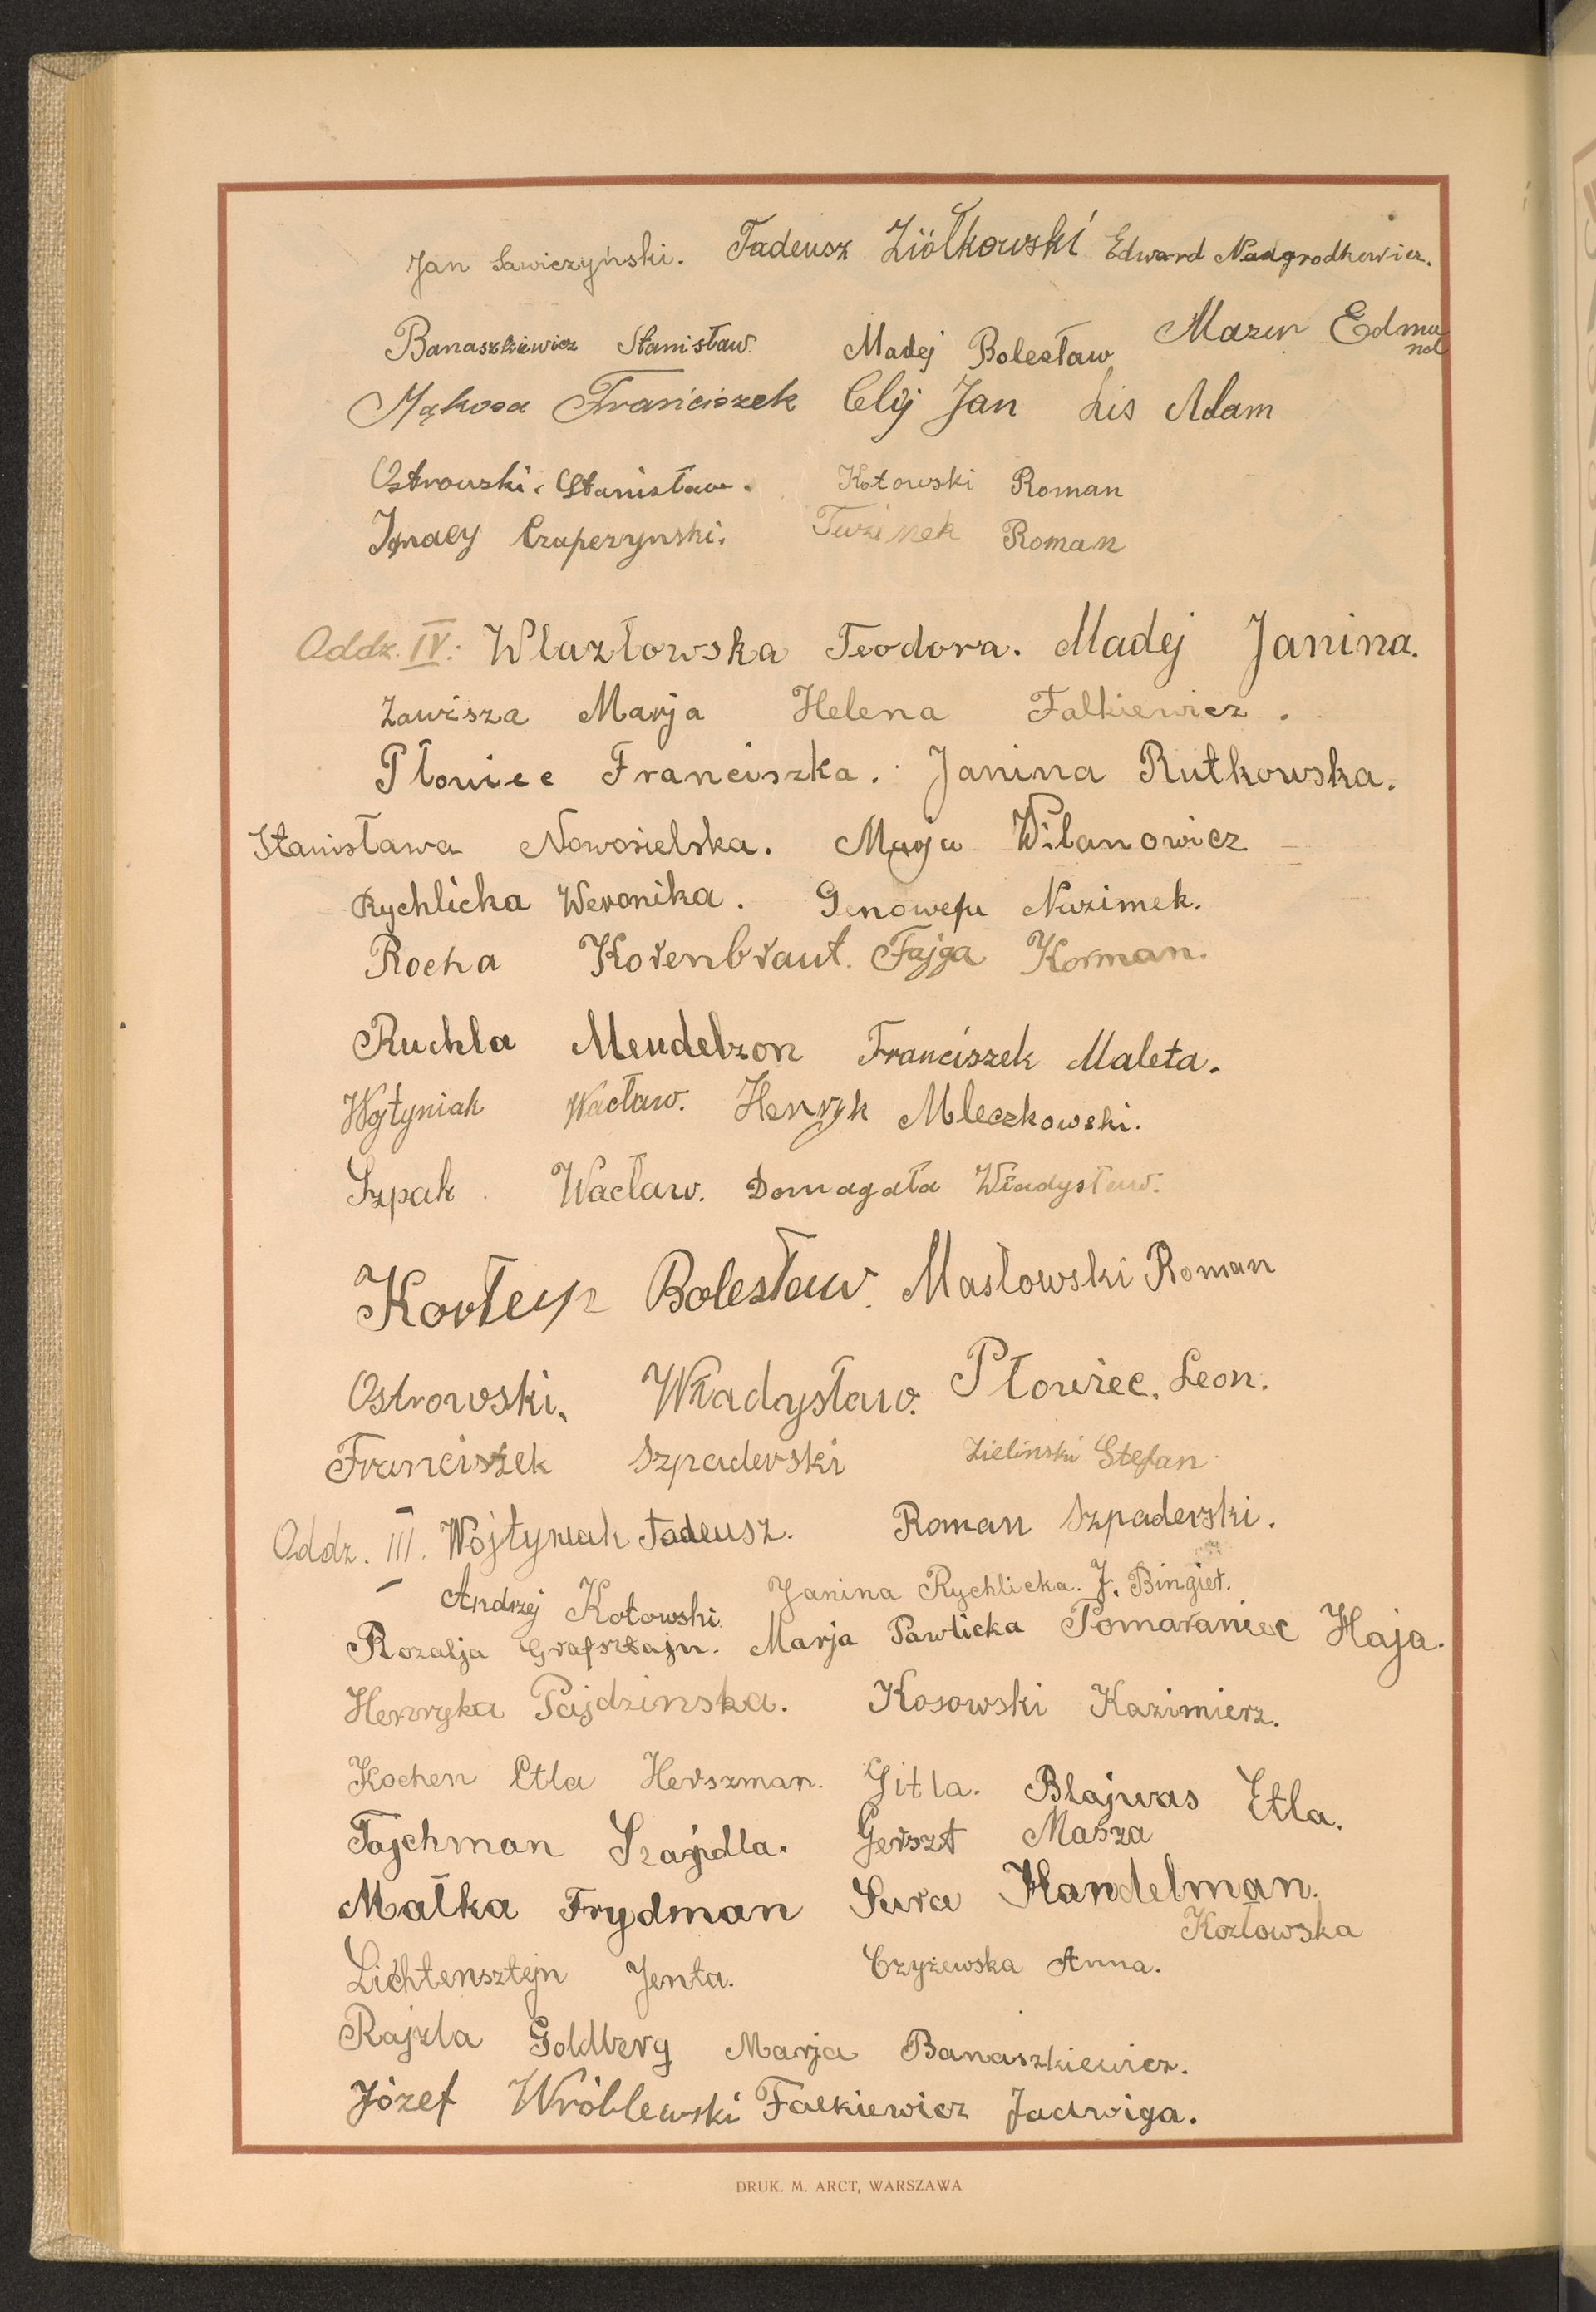 Jan Sawiczyński. Tadeusz Ziółkowski Edward Nadgrodkiewicz.
Banaszkiewicz Stanisław. Madej Bolesław Mazur Edmund
Mąkosa Franciszek Celij Jan Lis Adam
Ostrowski. Stanisław. Kotowski Roman
Ignacy Czaperzynski. Tuzimek Roman
Oddz. IV: Wlazłowska Teodora. Madej Janina.
Zawisza Marja Helena Falkiewicz.
Płowiec Franciszka. Janina Rutkowska.
Stanisława Nowosielska. Marja Wilanowicz
Rychlicka Weronika. Genowefa Nuzimek.
Rocha Korenbraut. Fajga Korman.
Ruchla Mendelzon Franciszek Maleta.
Wojtyniak Wacław. Henryk Mleczkowski.
Szpak Wacław. Domagała Władysław.
Bolesław. Masłowski Roman
Ostrowski, Władysław. Płowiec, Leon.
Franciszek Szpaderski Zieliński Stefan
Oddz. III. Wojtyniak Tadeusz. Roman Szpaderski.
Andrzej Kotowski Janina Rychlicka. J. Bingiet.
Rozalja Grafsztajn. Marja Pawlicka Pomaraniec Haja.
Henryka Pajdzinska. Kosowski Kazimierz.
Kochen Etla Herszman. Gitla. Blajwas Etla.
Tajchman Szajdla. Gerszt Masza
Małka Frydman Sura Handelman.
Kozłowska
Lichtensztejn Jenta. Czyżewska Anna.
Rajzla Goldberg Marja Banaszkiewicz.
Józef Wróblewski Falkiewicz Jadwiga.
DRUK. M. ARCT, WARSZAWA